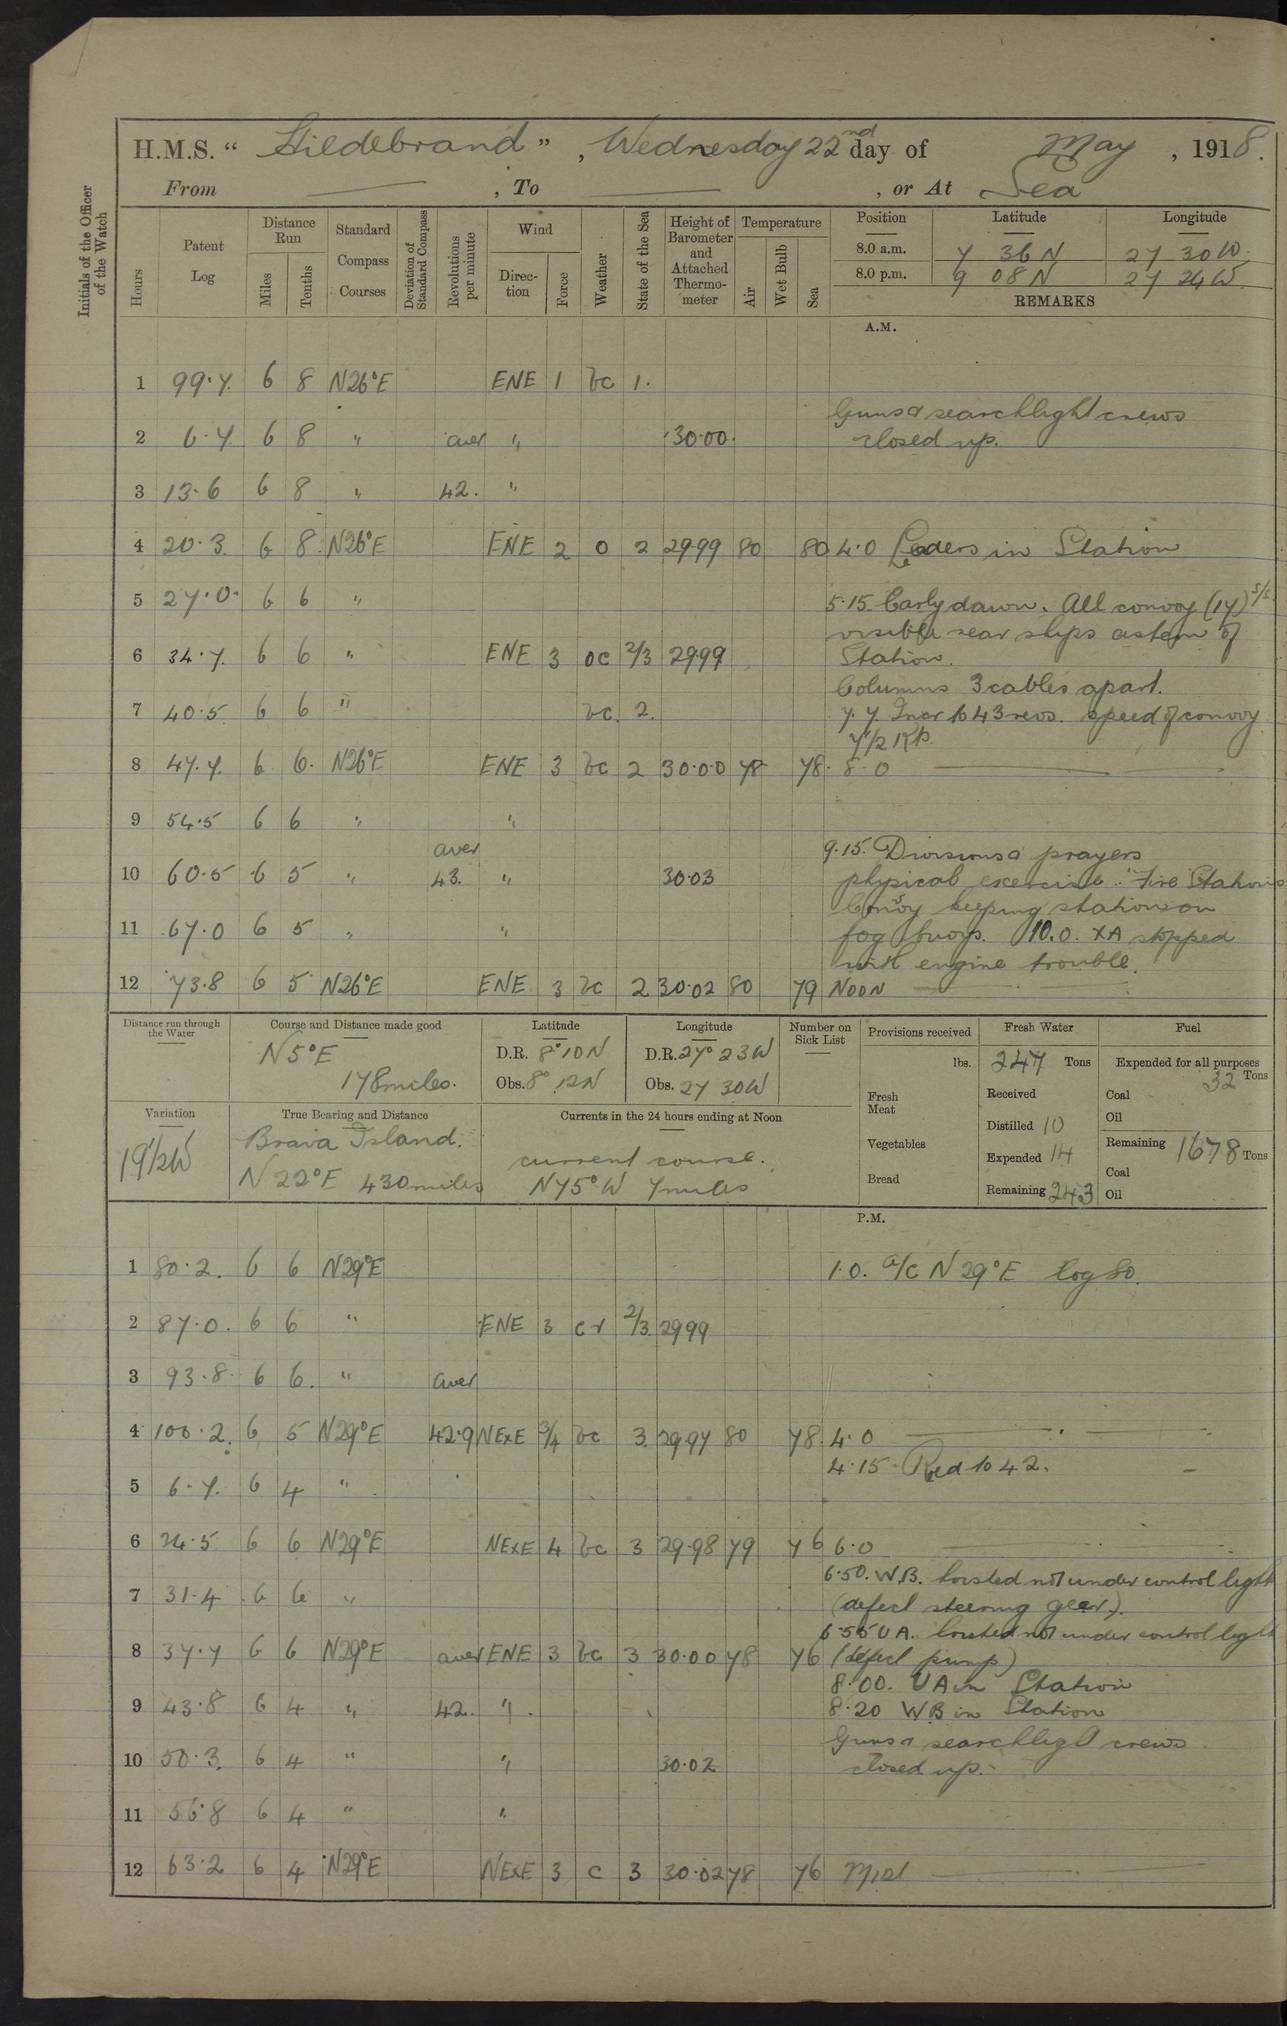 H.M.S. “ Hildebrand ” , Wednesday 22nd day of May , 1918.
From ——— , To ——— , or At Sea
Initials of the Officer of the Watch
Hours
Patent Log
Distance Run
Miles
Tenths
Standard Compass Courses
Deviation of Standard Compass
Revolutions per minute
Wind
Direc-tion
Force
Weather
State of the Sea
Height of Barometer and Attached Thermo-meter
Temperature
Air
Wet Bulb
Sea
Position Latitude Longitude
8.0 a.m. 7 36 N 27 30 W.
8.0 p.m. 9 08 N 27 24 W.
REMARKS
A.M.
1 99.7 6 8 N26°E ENE 1 bc 1.
Guns & searchlight crews
2 6.7 6 8 " aver " 30.00. closed up.
3 13.6 6 8 " 42. "
4 20.3 6 8 N26°E ENE 2 o 2 29.99 80 80 4.0 Leaders in Station
5 27.0 6 6 " 5.15 Early dawn. All convoy (17) s/s
visible rear ships astern of
6 34.7 6 6 " ENE 3 oc 2/3 29.99 Station.
Columns 3 cables apart.
7 40.5 6 6 " bc. 2. 7.7 Incr to 43 revs. speed of convoy
7 1/2 Kts.
8 47.7 6 6. N26°E ENE 3 bc 2 30.00 78 78. 8.0
9 54.5 6 6 " "
aver 9.15. Divisions & prayers
10 60.5 6 5 " 43. " 30.03 physical exercise. Fire Stations
Convoy keeping stations on
11 67.0 6 5 " " fog buoys. 10.0. XA stopped
with engine trouble.
12 73.8 6 5 N26°E ENE 3 bc 2 30.02 80 79 NOON
Distance run through the Water
Course and Distance made good
N5°E
178 miles.
Latitude
D.R. 8° 10 N
Obs. 8° 12 N
Longitude
D.R. 27° 23 W
Obs. 27 30 W
Number on Sick List
Provisions received
lbs.
Fresh Meat
Vegetables
Bread
Fresh Water
247 Tons
Received
Distilled 10
Expended 14
Remaining 243
Fuel
Expended for all purposes
32 Tons
Coal
Oil
Remaining 1678 Tons
Coal
Oil
Variation
19 1/2 W
True Bearing and Distance
Brava Island.
N22°E 430 miles
Currents in the 24 hours ending at Noon
current course.
N75°W 7 miles
P.M.
1 80.2. 6 6 N29°E 1.0. a/c N29°E log 80.
2 87.0. 6 6 " ENE 3 cr 2/3 29.99
3 93.8 6 6. " aver
4 100.2. 6 5 N29°E 42.9 NExE 3/4 bc 3 29.97 80 78. 4.0
4.15 Red to 42.
5 6.7. 6 4 "
6 24.5 6 6 N29°E NExE 4 bc 3 29.98 79 76 6.0
6.50. W.B. hoisted not under control light
7 31.4 6 6 " (defect steering gear).
6.55 UA. hoisted not under control light
8 37.7 6 6 N29°E aver ENE 3 bc 3 30.00 78 76 (defect pump)
8.00. UA in Station
9 43.8 6 4 " 42. " 8.20 WB in Station
Guns & searchlight crews
10 50.3. 6 4 " " 30.02 closed up.
11 56.8 6 4 " "
12 63.2 6 4 N29°E NExE 3 c 3 30.02 78 76 Mid